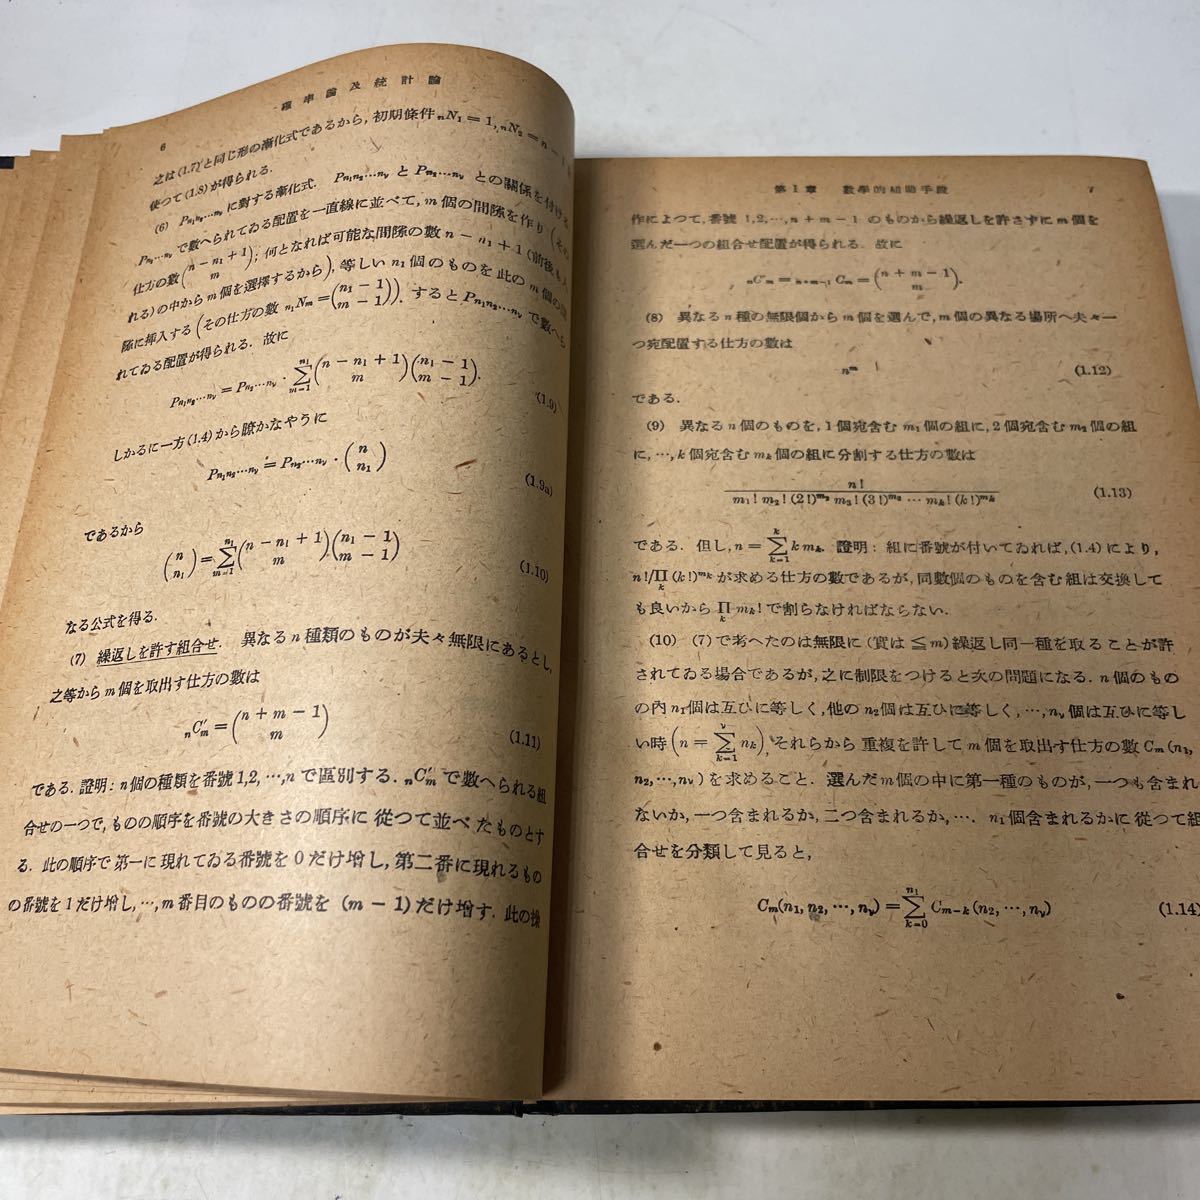 6
確率論及統計論
之は(1.7)と同じ形の漸化式であるから, 初期條件 ₙN₁ = 1, ₙN₂ = n − 1
使つて(1.8)が得られる.
(6) Pn₁n₂…nᵥ に對する漸化式. Pn₁n₂…nᵥ と Pn₂…nᵥ との關係を付ける
Pn₂…nᵥ で數へられてゐる配置を一直線に並べて, m 個の間隙を作り (その
仕方の數 (n − n₁ + 1 / m); 何となれば可能な間隙の數 n − n₁ + 1 (前後も入
れる)の中から m 個を選擇するから), 等しい n₁ 個のものを 此の m 個の間
隙に挿入する (その仕方の數 n₁Nm = (n₁ − 1 / m − 1)). すると Pn₁n₂…nᵥ で數へら
れてゐる配置が得られる. 故に
Pn₁n₂…nᵥ = Pn₂…nᵥ · Σ_{m=1}^{n₁} (n − n₁ + 1 / m)(n₁ − 1 / m − 1). (1.9)
しかるに一方(1.4)から瞭かなやうに
Pn₁n₂…nᵥ = Pn₂…nᵥ · (n / n₁) (1.9a)
であるから
(n / n₁) = Σ_{m=1}^{n₁} (n − n₁ + 1 / m)(n₁ − 1 / m − 1) (1.10)
なる公式を得る.
(7) 繰返しを許す組合せ. 異なる n 種類のものが夫々無限にあるとし,
之等から m 個を取出す仕方の數は
ₙC′ₘ = (n + m − 1 / m) (1.11)
である. 證明: n個の種類を番號1,2, …, n で區別する. ₙC′ₘ で數へられる組
合せの一つで, ものの順序を番號の大きさの順序に 從つて並べたものとす
る. 此の順序で 第一に 現れてゐる番號を 0 だけ增し, 第二番に現れるもの
の番號を 1 だけ增し, …, m 番目のものの番號を (m − 1) だけ增す. 此の操
第1章 數學的補助手段 7
作によつて, 番號 1,2, …, n + m − 1 のものから繰返しを許さずに m 個を
選んだ一つの組合せ配置が得られる. 故に
ₙC′ₘ = ₙ₊ₘ₋₁Cₘ = (n + m − 1 / m).
(8) 異なる n 種の無限個から m 個を選んで, m 個の異なる場所へ夫々一
つ宛配置する仕方の數は
nᵐ (1.12)
である.
(9) 異なる n 個のものを, 1 個宛含む m₁ 個の組に, 2 個宛含む m₂ 個の組
に, …, k 個宛含む mₖ 個の組に分割する仕方の數は
n! / m₁! m₂! (2!)^m₂ m₃! (3!)^m₃ … mₖ! (k!)^mₖ (1.13)
である. 但し, n = Σ_{k=1}^{k} k mₖ. 證明: 組に番號が付いてゐれば, (1.4) により,
n!/Π_k (k!)^mₖ が求める仕方の數であるが, 同數個のものを含む組は交換して
も良いから Π_k mₖ! で割らなければならない.
(10) (7) で考へたのは無限に (實は ≦ m) 繰返し同一種を取ることが許
されてゐる場合であるが, 之に制限をつけると次の問題になる. n 個のもの
の內 n₁個は互ひに等しく, 他の n₂個は互ひに等しく, …, nᵥ 個は互ひに等し
い時 (n = Σ_{k=1}^{ν} nₖ), それらから 重複を許して m 個を取出す仕方の數 Cₘ(n₁,
n₂, …, nᵥ) を求めること. 選んだ m 個の中に第一種のものが, 一つも含まれ
ないか, 一つ含まれるか, 二つ含まれるか, …. n₁ 個含まれるかに 從つて組
合せを分類して見ると,
Cₘ(n₁, n₂, …, nᵥ) = Σ_{k=0}^{n₁} Cₘ₋ₖ(n₂, …, nᵥ) (1.14)